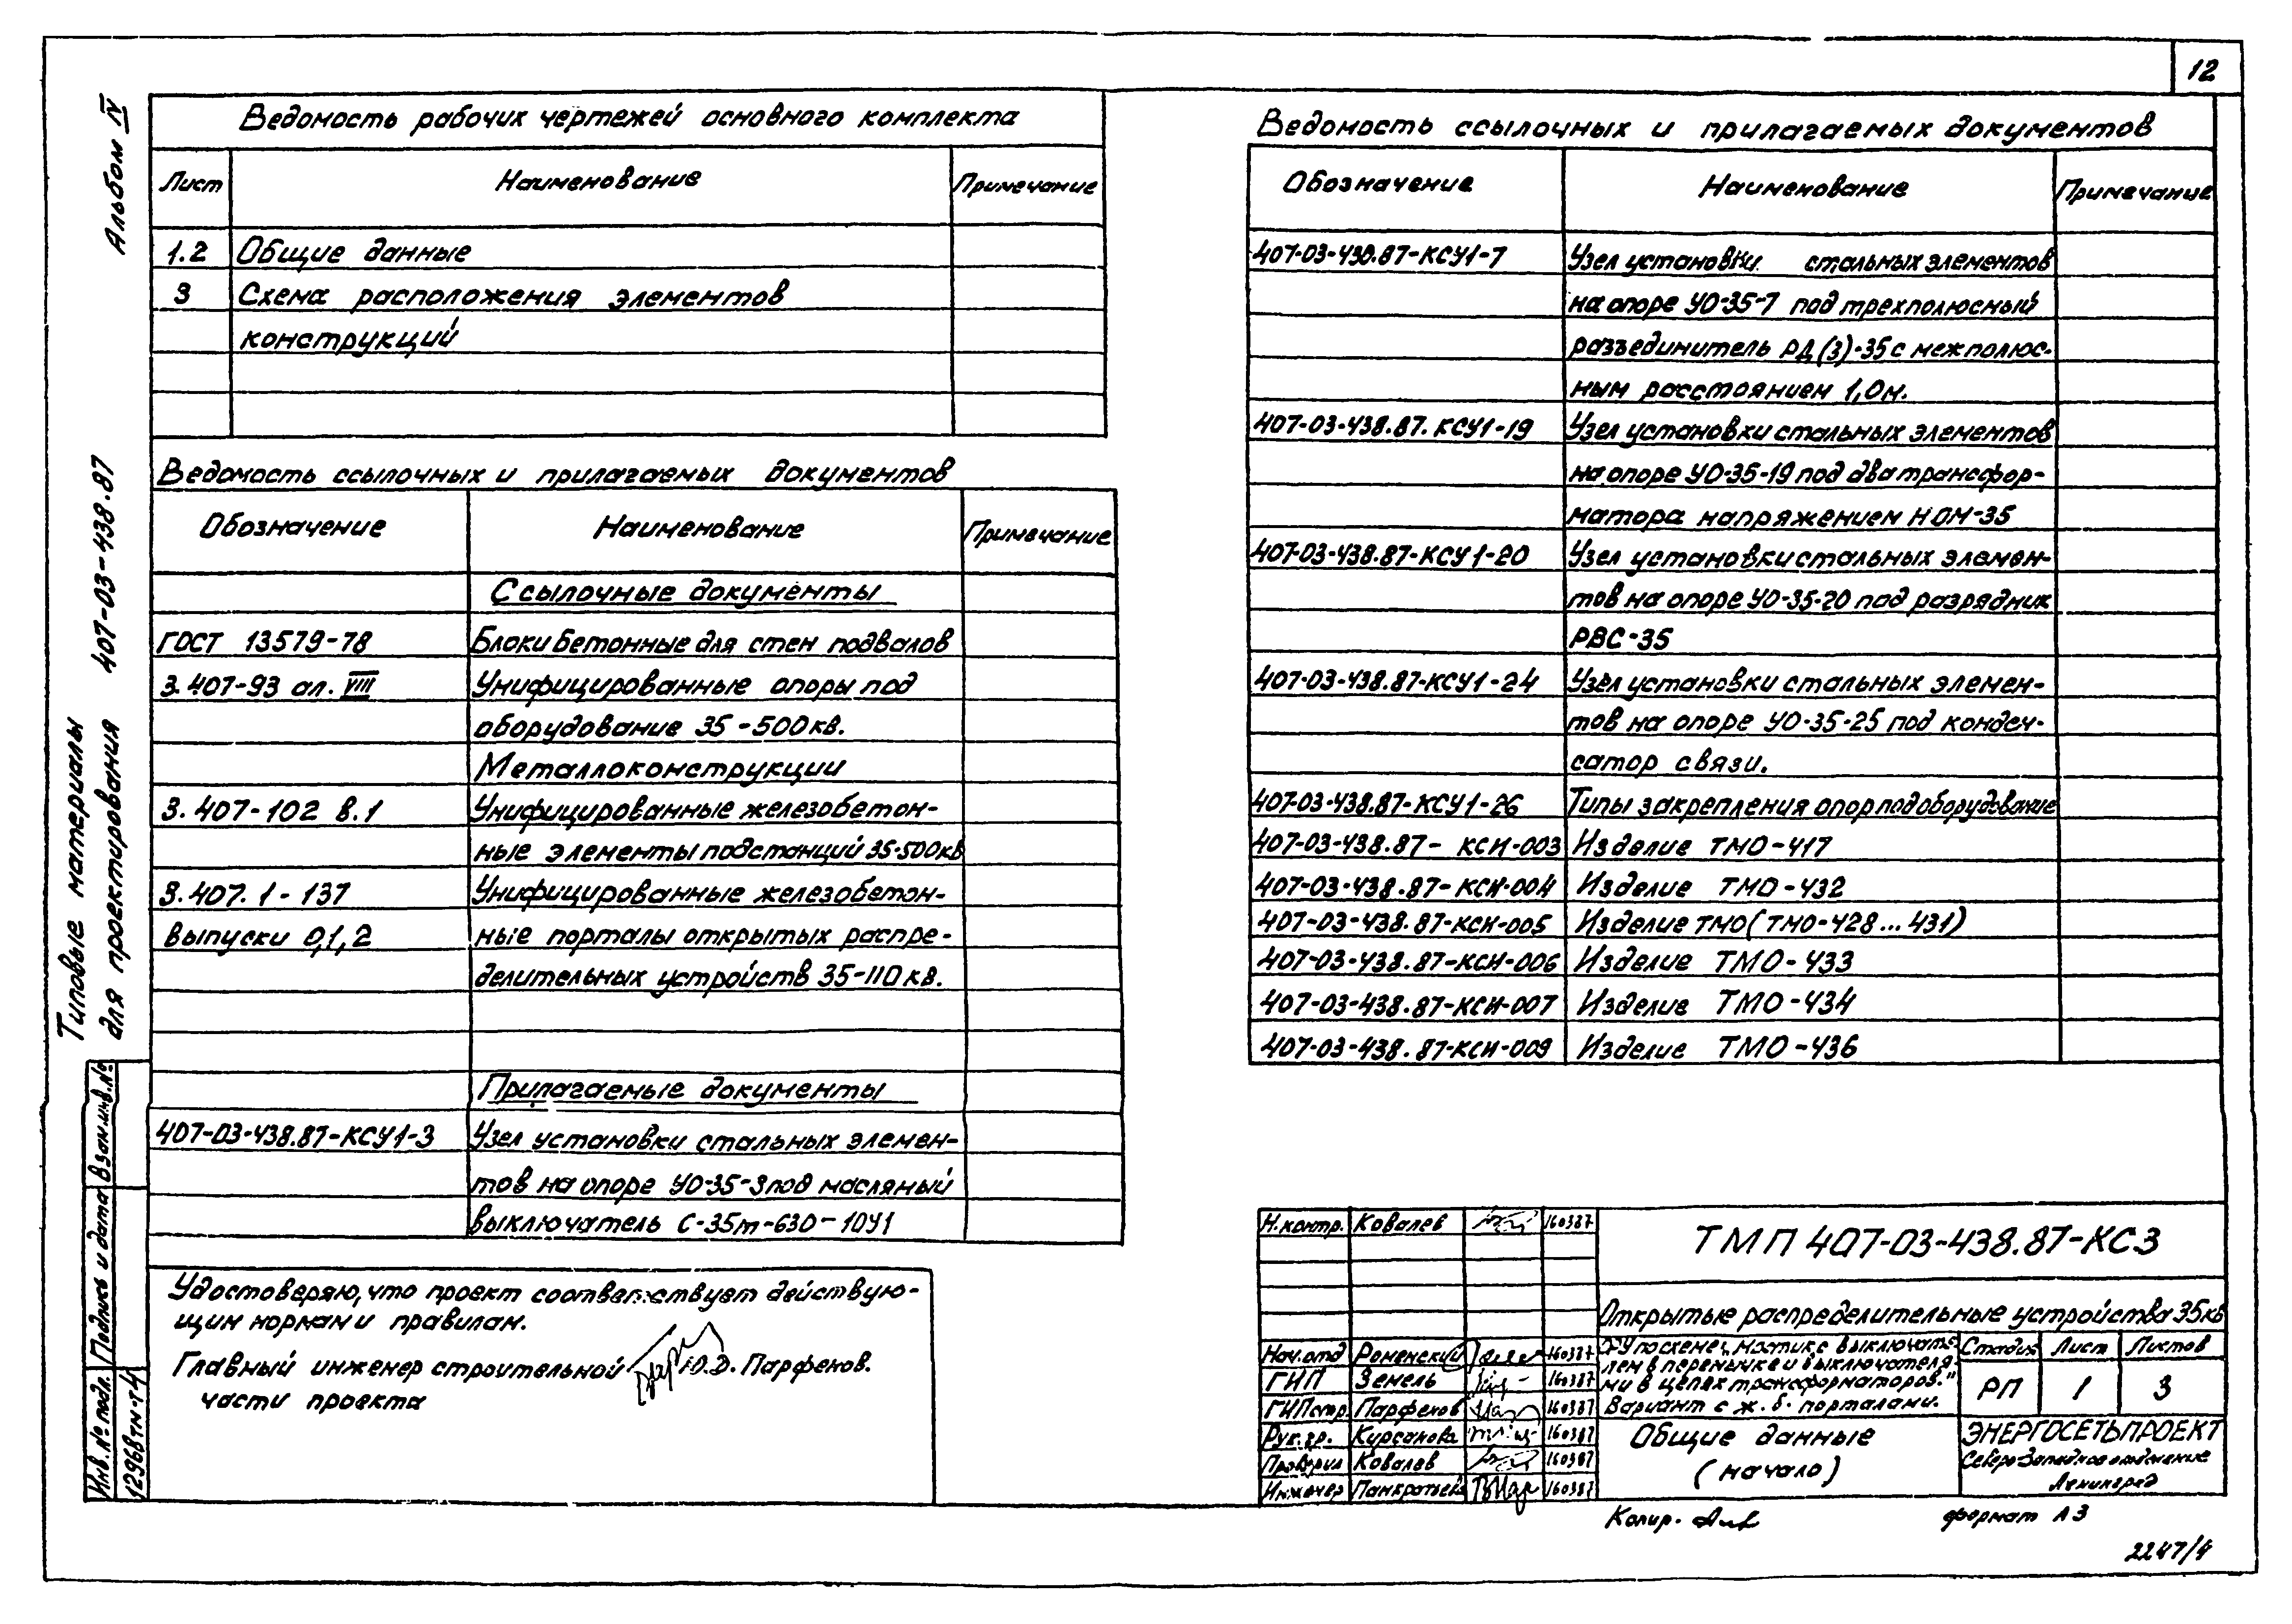 12
Альбом IV
Типовые материалы
для проектирования 407-03-438.87
Ведомость рабочих чертежей основного комплекта
Лист Наименование Примечание
1.2 Общие данные
3 Схема расположения элементов
конструкций
Ведомость ссылочных и прилагаемых документов
Обозначение Наименование Примечание
Ссылочные документы
ГОСТ 13579-78 Блоки бетонные для стен подвалов
3.407-93 ал. VIII Унифицированные опоры под
оборудование 35-500кв.
Металлоконструкции
3.407-102 в.1 Унифицированные железобетон-
ные элементы подстанций 35-500кв
3.407.1-137 Унифицированные железобетон-
выпуски 0,1,2 ные порталы открытых распре-
делительных устройств 35-110кв.
Прилагаемые документы
407-03-438.87-КСУ1-3 Узел установки стальных элемен-
тов на опоре УО-35-3под масляный
выключатель С-35т-630-10У1
Удостоверяю, что проект соответствует действую-
щим нормам и правилам.
Главный инженер строительной Ю.Д. Парфенов.
части проекта
Ведомость ссылочных и прилагаемых документов
Обозначение Наименование Примечание
407-03-438.87-КСУ1-7 Узел установки стальных элементов
на опоре УО-35-7 под трехполюсный
разъединитель РД(З)-35 с межполюс-
ным расстоянием 1,0м.
407-03-438.87.КСУ1-19 Узел установки стальных элементов
на опоре УО-35-19 под два трансфор-
матора напряжением НОМ-35
407-03-438.87-КСУ1-20 Узел установки стальных элемен-
тов на опоре УО-35-20 под разрядник
РВС-35
407-03-438.87-КСУ1-24 Узел установки стальных элемен-
тов на опоре УО-35-25 под конден-
сатор связи.
407-03-438.87-КСУ1-26 Типы закрепления опор под оборудование
407-03-438.87-КСИ-003 Изделие ТМО-417
407-03-438.87-КСИ-004 Изделие ТМО-432
407-03-438.87-КСИ-005 Изделие ТМО(ТМО-428...431)
407-03-438.87-КСИ-006 Изделие ТМО-433
407-03-438.87-КСИ-007 Изделие ТМО-434
407-03-438.87-КСИ-009 Изделие ТМО-436
Н.контр. Ковалев 160387
ТМП 407-03-438.87-КС3
Открытые распределительные устройства 35кв
Нач.отд Роменский 160387
ГИП Земель 160387
ГИПстр. Парфенов 160387
Рук.гр. Курсанова 160387
Проверил Ковалев 160387
Инженер Панкратьева 160387
ОРУ по схеме „Мостик с выключате-
лем в перемычке и выключателя-
ми в цепях трансформаторов."
Вариант с ж.б. порталами.
Стадия Лист Листов
РП 1 3
Общие данные
(начало)
ЭНЕРГОСЕТЬПРОЕКТ
Северо-Западное отделение
Ленинград
Взам.инв.№
Подпись и дата
Инв.№ подл.
12968тм-т4
Копир. формат А3
2247/4